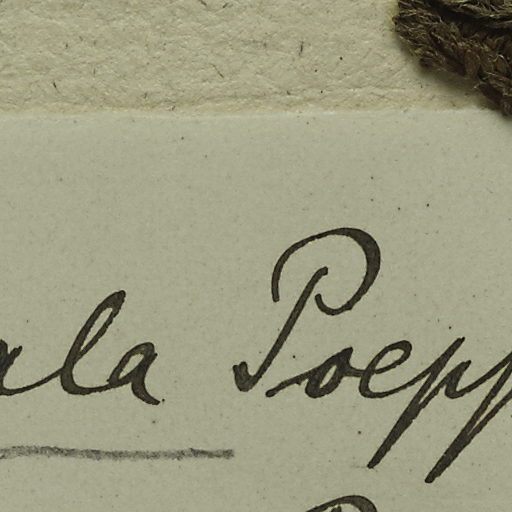 ala Poepp